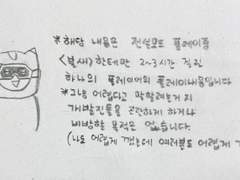 *해당 내용은 전설모드 플레이중
<별세>한테만 2~3시간 질린
하나의 플레이어의 플레이내용입니다
*그냥 어렵다고 막할려는거지
개발진들을 곤란하게 하거나
비방할 목적은 없습니다.
(나도 어렵게 깼는데 여러분도 어렵게